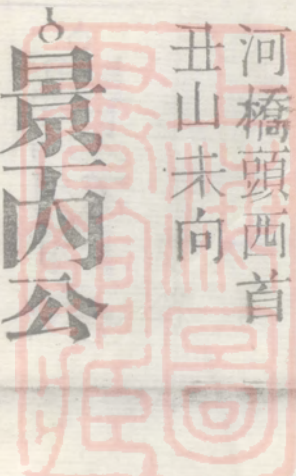 河橋頭西首
丑山未向
景内公